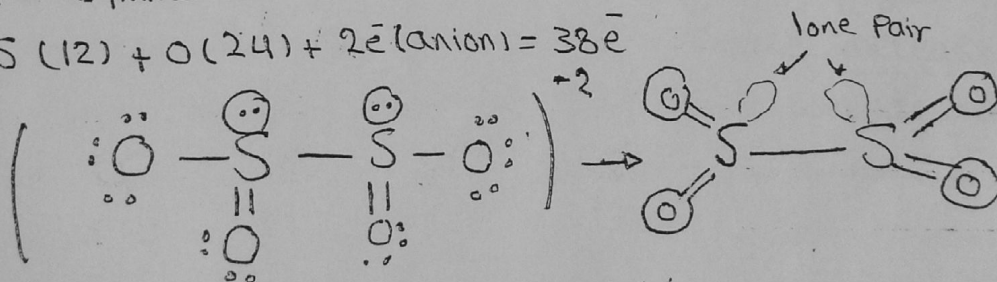 S (12) + O (24) + 2ē (anion) = 38ē
lone Pair
-2
:O — S — S — O: → S — S
O O O O
:O O: